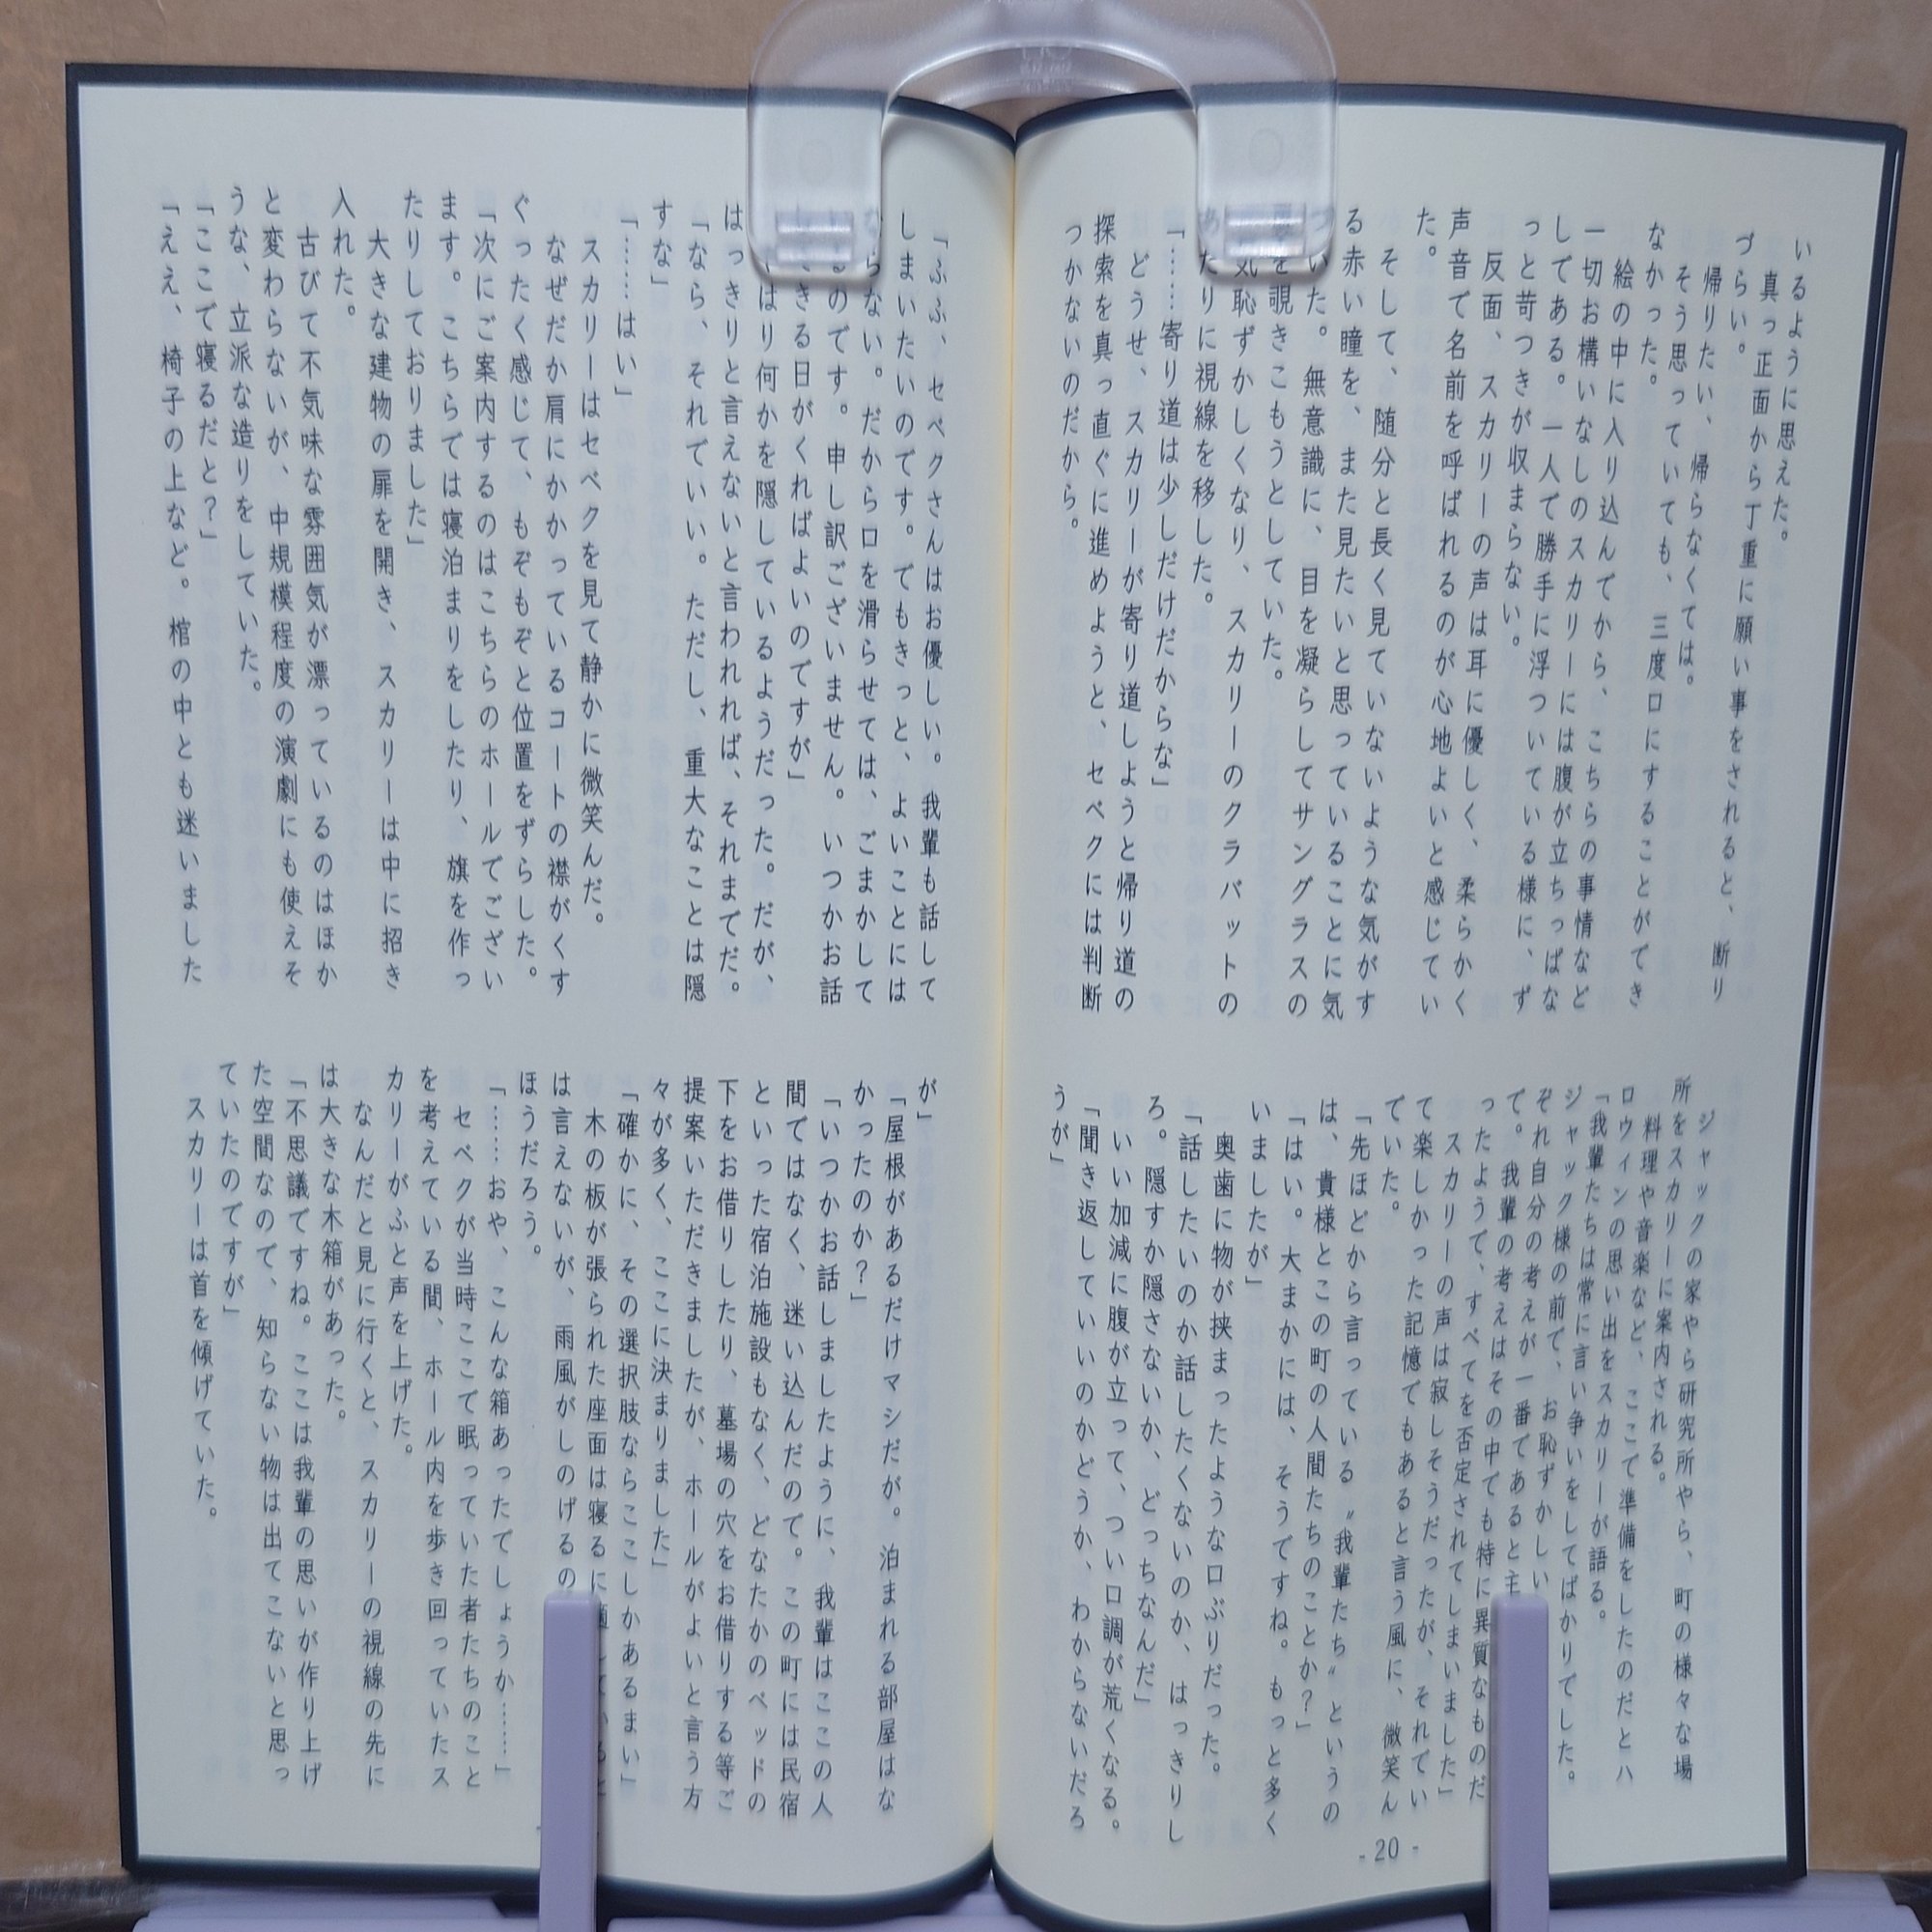 いるように思えた。
真っ正面から丁重に願い事をされると、断り
づらい。
帰りたい、帰らなくては。
そう思っていても、三度口にすることができ
なかった。
絵の中に入り込んでから、こちらの事情など
一切お構いなしのスカリーには腹が立ちっぱな
してある。一人で勝手に浮ついている様に、ず
っと苛つきが収まらない。
反面、スカリーの声は耳に優しく、柔らかく
声音で名前を呼ばれるのが心地よいと感じてい
た。
そして、随分と長く見ていないような気がす
る赤い瞳を、また見たいと思っていることに気
づいた。無意識に、目を凝らしてサングラスの
を覗きこもうとしていた。
気恥ずかしくなり、スカリーのクラバットの
あたりに視線を移した。
「……寄り道は少しだけだからな」
どうせ、スカリーが寄り道しようと帰り道の
探索を真っ直ぐに進めようと、セベクには判断
つかないのだから。
ジャックの家やら研究所やら、町の様々な場
所をスカリーに案内される。
料理や音楽など、ここで準備をしたのだとハ
ロウィンの思い出をスカリーが語る。
「我輩たちは常に言い争いをしてばかりでした。
ジャック様の前で、お恥ずかしい
ぞれ自分の考えが一番であると主
て。我輩の考えはその中でも特に異質なものだ
ったようで、すべてを否定されてしまいました」
スカリーの声は寂しそうだったが、それでい
て楽しかった記憶でもあると言う風に、微笑ん
でいた。
「先ほどから言っている〝我輩たち〟というの
は、貴様とこの町の人間たちのことか？」
「はい。大まかには、そうですね。もっと多く
いましたが」
奥歯に物が挟まったような口ぶりだった。
「話したいのか話したくないのか、はっきりし
ろ。隠すか隠さないか、どっちなんだ」
いい加減に腹が立って、つい口調が荒くなる。
「聞き返していいのかどうか、わからないだろ
うが」
- 20 -
「ふふ、セベクさんはお優しい。我輩も話して
しまいたいのです。でもきっと、よいことには
ならない。だから口を滑らせては、ごまかして
るのです。申し訳ございません。いつかお話
きる日がくればよいのですが」
はり何かを隠しているようだった。だが、
はっきりと言えないと言われれば、それまでだ。
「なら、それでいい。ただし、重大なことは隠
すな」
「……はい」
スカリーはセベクを見て静かに微笑んだ。
なぜだか肩にかかっているコートの襟がくす
ぐったく感じて、もぞもぞと位置をずらした。
「次にご案内するのはこちらのホールでござい
ます。こちらでは寝泊まりをしたり、旗を作っ
たりしておりました」
大きな建物の扉を開き、スカリーは中に招き
入れた。
古びて不気味な雰囲気が漂っているのはほか
と変わらないが、中規模程度の演劇にも使えそ
うな、立派な造りをしていた。
「ここで寝るだと？」
「ええ、椅子の上など。棺の中とも迷いました
が」
「屋根があるだけマシだが。泊まれる部屋はな
かったのか？」
「いつかお話しましたように、我輩はここの人
間ではなく、迷い込んだので。この町には民宿
といった宿泊施設もなく、どなたかのベッドの
下をお借りしたり、墓場の穴をお借りする等ご
提案いただきましたが、ホールがよいと言う方
々が多く、ここに決まりました」
「確かに、その選択肢ならここしかあるまい」
木の板が張られた座面は寝るに
は言えないが、雨風がしのげるの
ほうだろう。
「……おや、こんな箱あったでしょうか……」
セベクが当時ここで眠っていた者たちのこと
を考えている間、ホール内を歩き回っていたス
カリーがふと声を上げた。
なんだと見に行くと、スカリーの視線の先に
は大きな木箱があった。
「不思議ですね。ここは我輩の思いが作り上げ
た空間なので、知らない物は出てこないと思っ
ていたのですが」
スカリーは首を傾げていた。